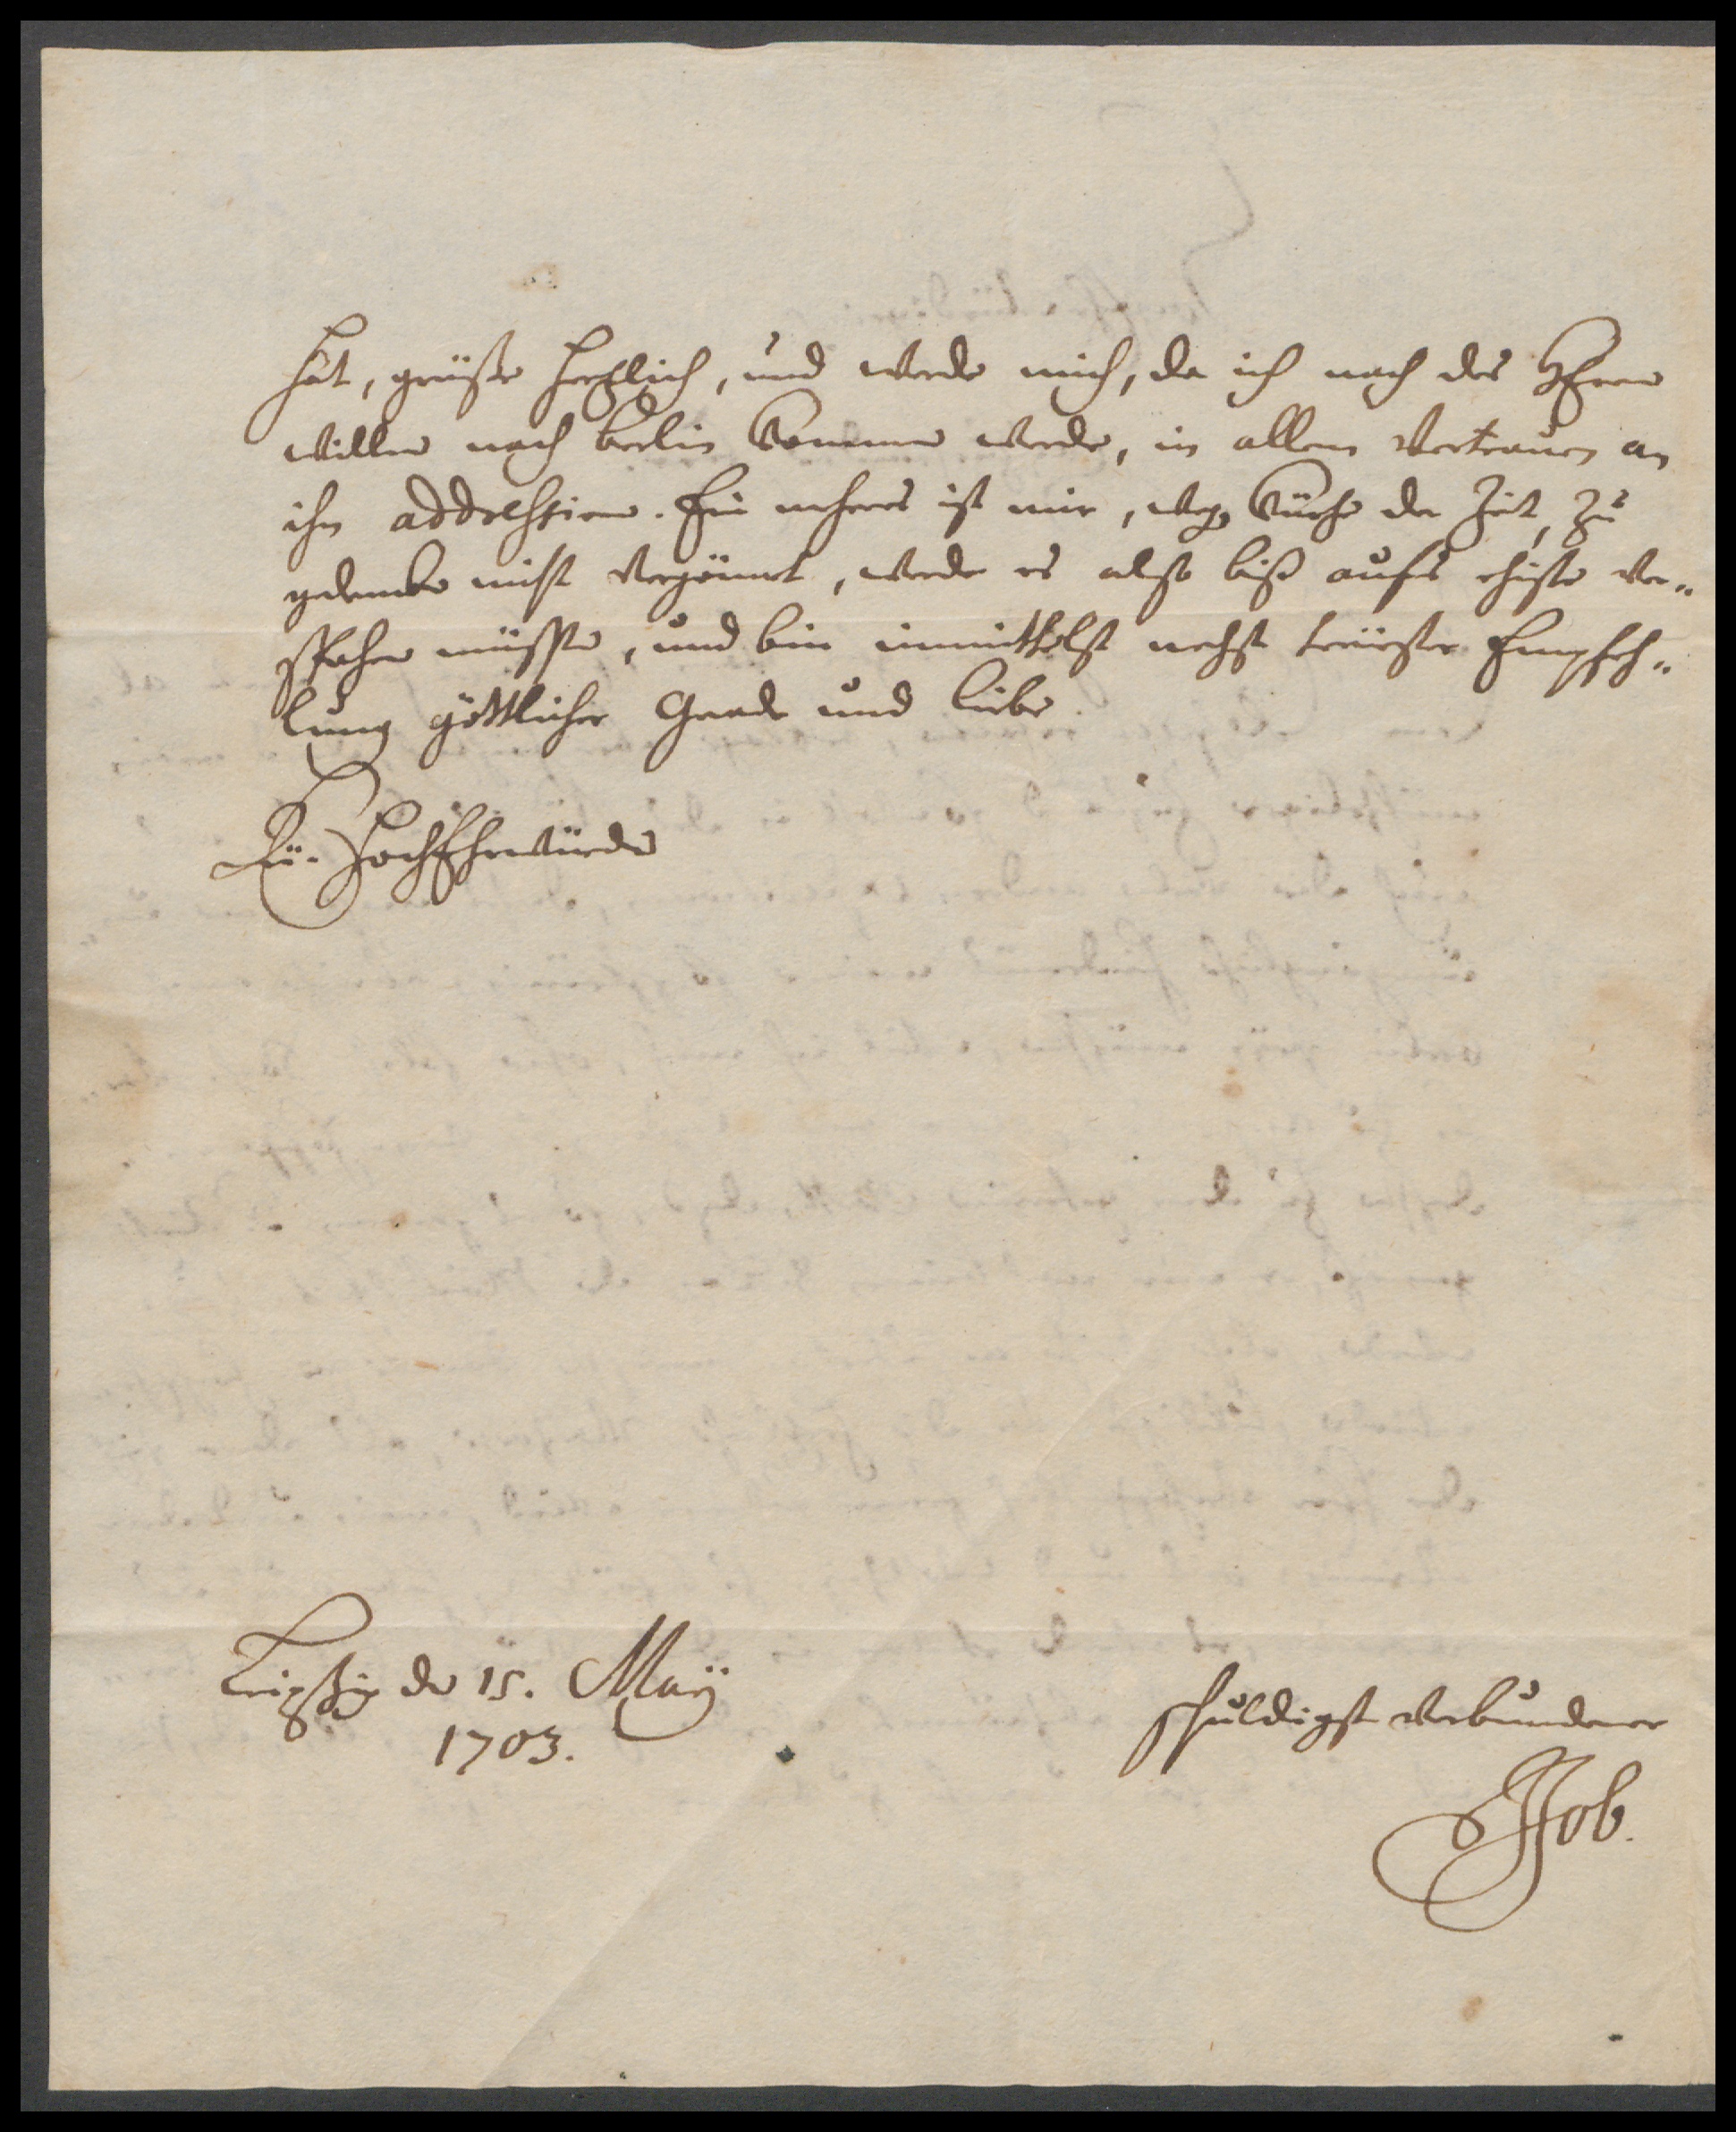 hat, grüße hertzlich, und werde mich, da ich nach des HErrn
willen nach berlin kommen werde, in allem Vertrauen an
ihn addressiren. Ein mehres ist mir, weg. Kürtze der Zeit, zu
gedencken nicht vergönnet, werde es also biß aufs ehiste ver-
spahren müssen, und bin inmittelst nechst treüester Empfeh-
lung göttlicher Gnade und Liebe
Eu. HochEhrwürden
Leipzig den 15. Maÿ
1703.
schuldigst verbundener
Job.